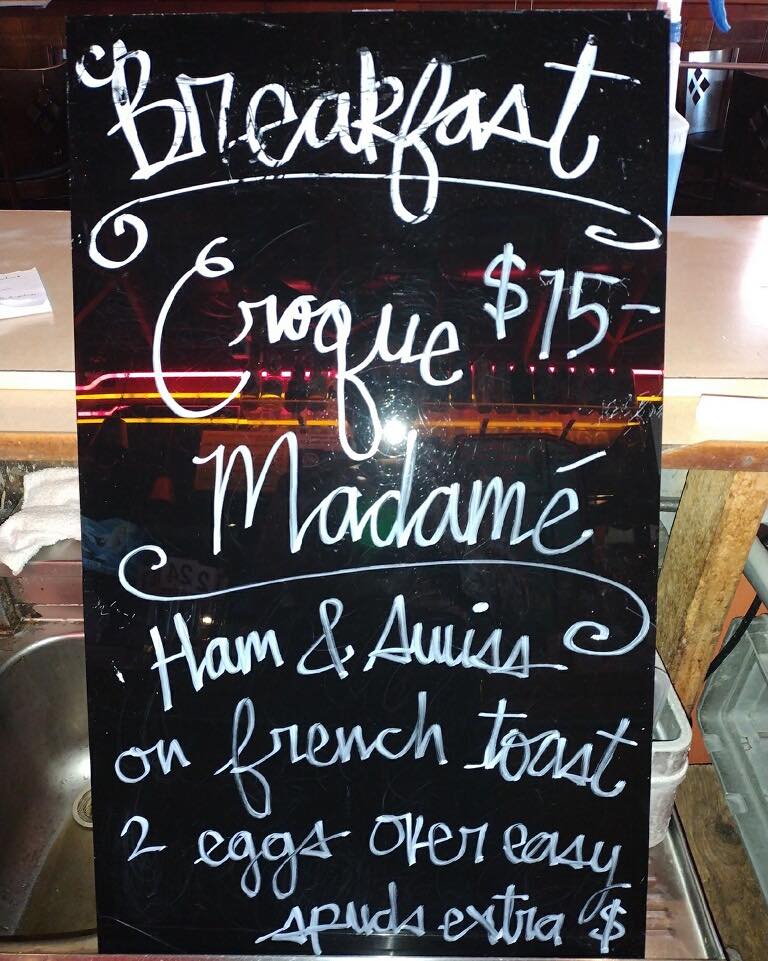 Breakfast
Croque $15-
Madamé
Ham & Swiss
on french toast
2 eggs over easy
spuds extra $